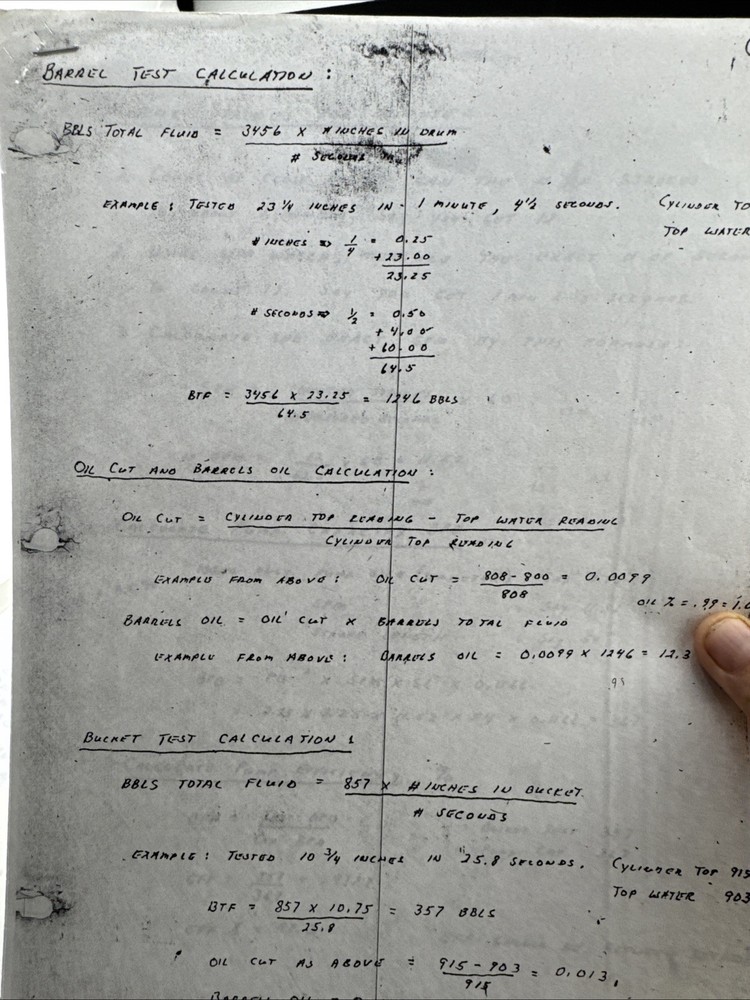 BARREL TEST CALCULATION :
BBLS TOTAL FLUID = 3456 X # INCHES IN DRUM
# SECONDS
EXAMPLE : TESTED 23 1/4 INCHES IN 1 MINUTE, 4 1/2 SECONDS. CYLINDER TO
TOP WATER
# INCHES ⇒ 1/4 = 0.25
+ 23.00
23.25
# SECONDS ⇒ 1/2 = 0.50
+ 4.00
+ 60.00
64.5
BTF = 3456 X 23.25 = 1246 BBLS
64.5
OIL CUT AND BARRELS OIL CALCULATION :
OIL CUT = CYLINDER TOP READING - TOP WATER READING
CYLINDER TOP READING
EXAMPLE FROM ABOVE : OIL CUT = 808 - 800 = 0.0099
808
OIL % = .99 = 1.0
BARRELS OIL = OIL CUT X BARRELS TOTAL FLUID
EXAMPLE FROM ABOVE : BARRELS OIL = 0.0099 X 1246 = 12.3
BUCKET TEST CALCULATION :
BBLS TOTAL FLUID = 857 X # INCHES IN BUCKET
# SECONDS
EXAMPLE : TESTED 10 3/4 INCHES IN 25.8 SECONDS. CYLINDER TOP 915
TOP WATER 903
BTF = 857 X 10.75 = 357 BBLS
25.8
OIL CUT AS ABOVE = 915 - 903 = 0.013,
915
BARRELS OIL =